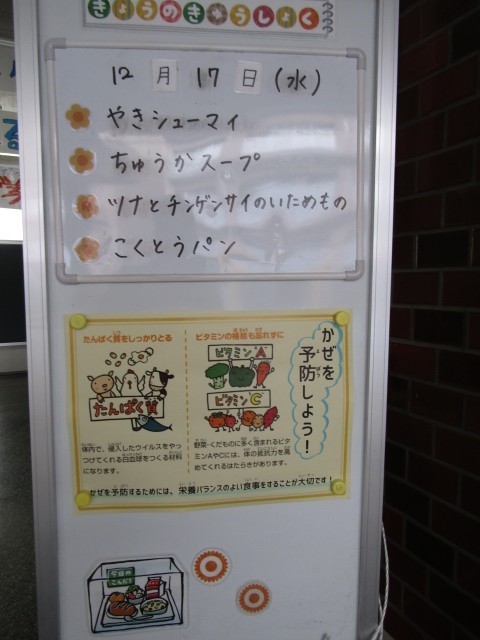 きょうのきゅうしょく
12月17日(水)
やきシューマイ
ちゅうかスープ
ツナとチンゲンサイのいためもの
こくとうパン
かぜを
予防しよう!
たんぱく質をしっかりとる
たんぱく質
体内で、侵入したウイルスをやっ
つけてくれる白血球をつくる材料
になります。
ビタミンの補給も忘れずに
ビタミンA
ビタミンC
野菜・くだものに多く含まれるビタ
ミンAやCには、体の抵抗力を高
めてくれるはたらきがあります。
かぜを予防するためには、栄養バランスのよい食事をすることが大切です!